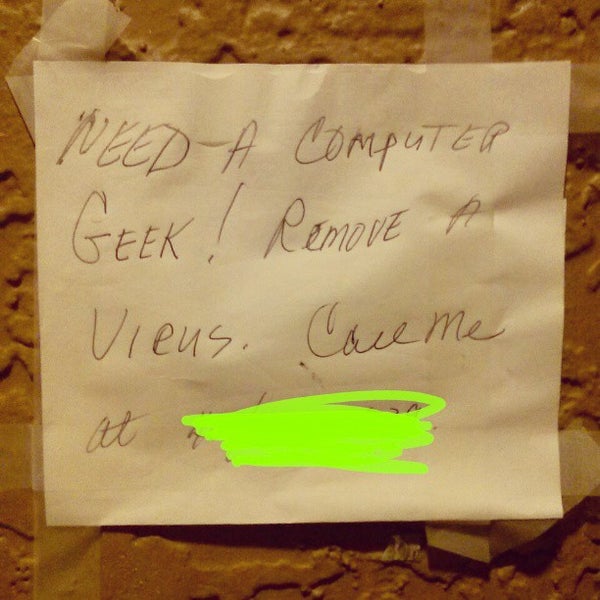 NEED A COMPUTER
GEEK! REMOVE A
VIRUS. Call Me
at